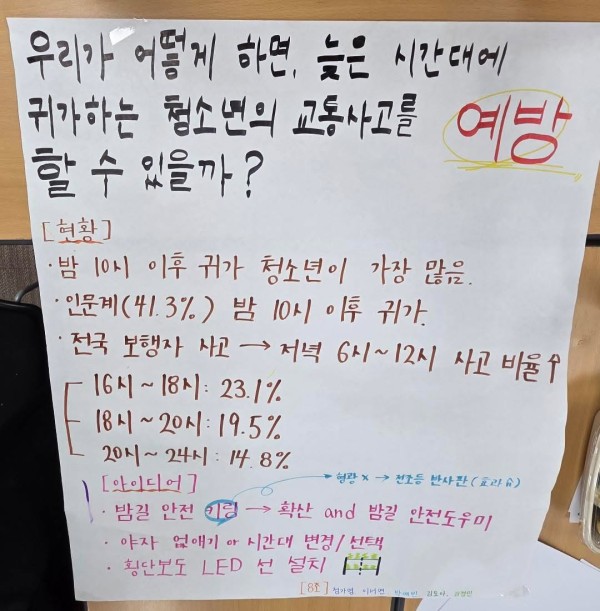 우리가 어떻게 하면, 늦은 시간대에
귀가하는 청소년의 교통사고를 예방
할 수 있을까?
[현황]
· 밤 10시 이후 귀가 청소년이 가장 많음.
· 인문계(41.3%) 밤 10시 이후 귀가.
· 전국 보행자 사고 → 저녁 6시~12시 사고 비율↑
16시~18시: 23.1%
18시~20시: 19.5%
20시~24시: 14.8%
형광 x → 전조등 반사판(효과 유)
[아이디어]
· 밤길 안전 키링 → 확산 and 밤길 안전도우미
· 야자 없애기 or 시간대 변경/선택
· 횡단보도 LED 선 설치
[8조]